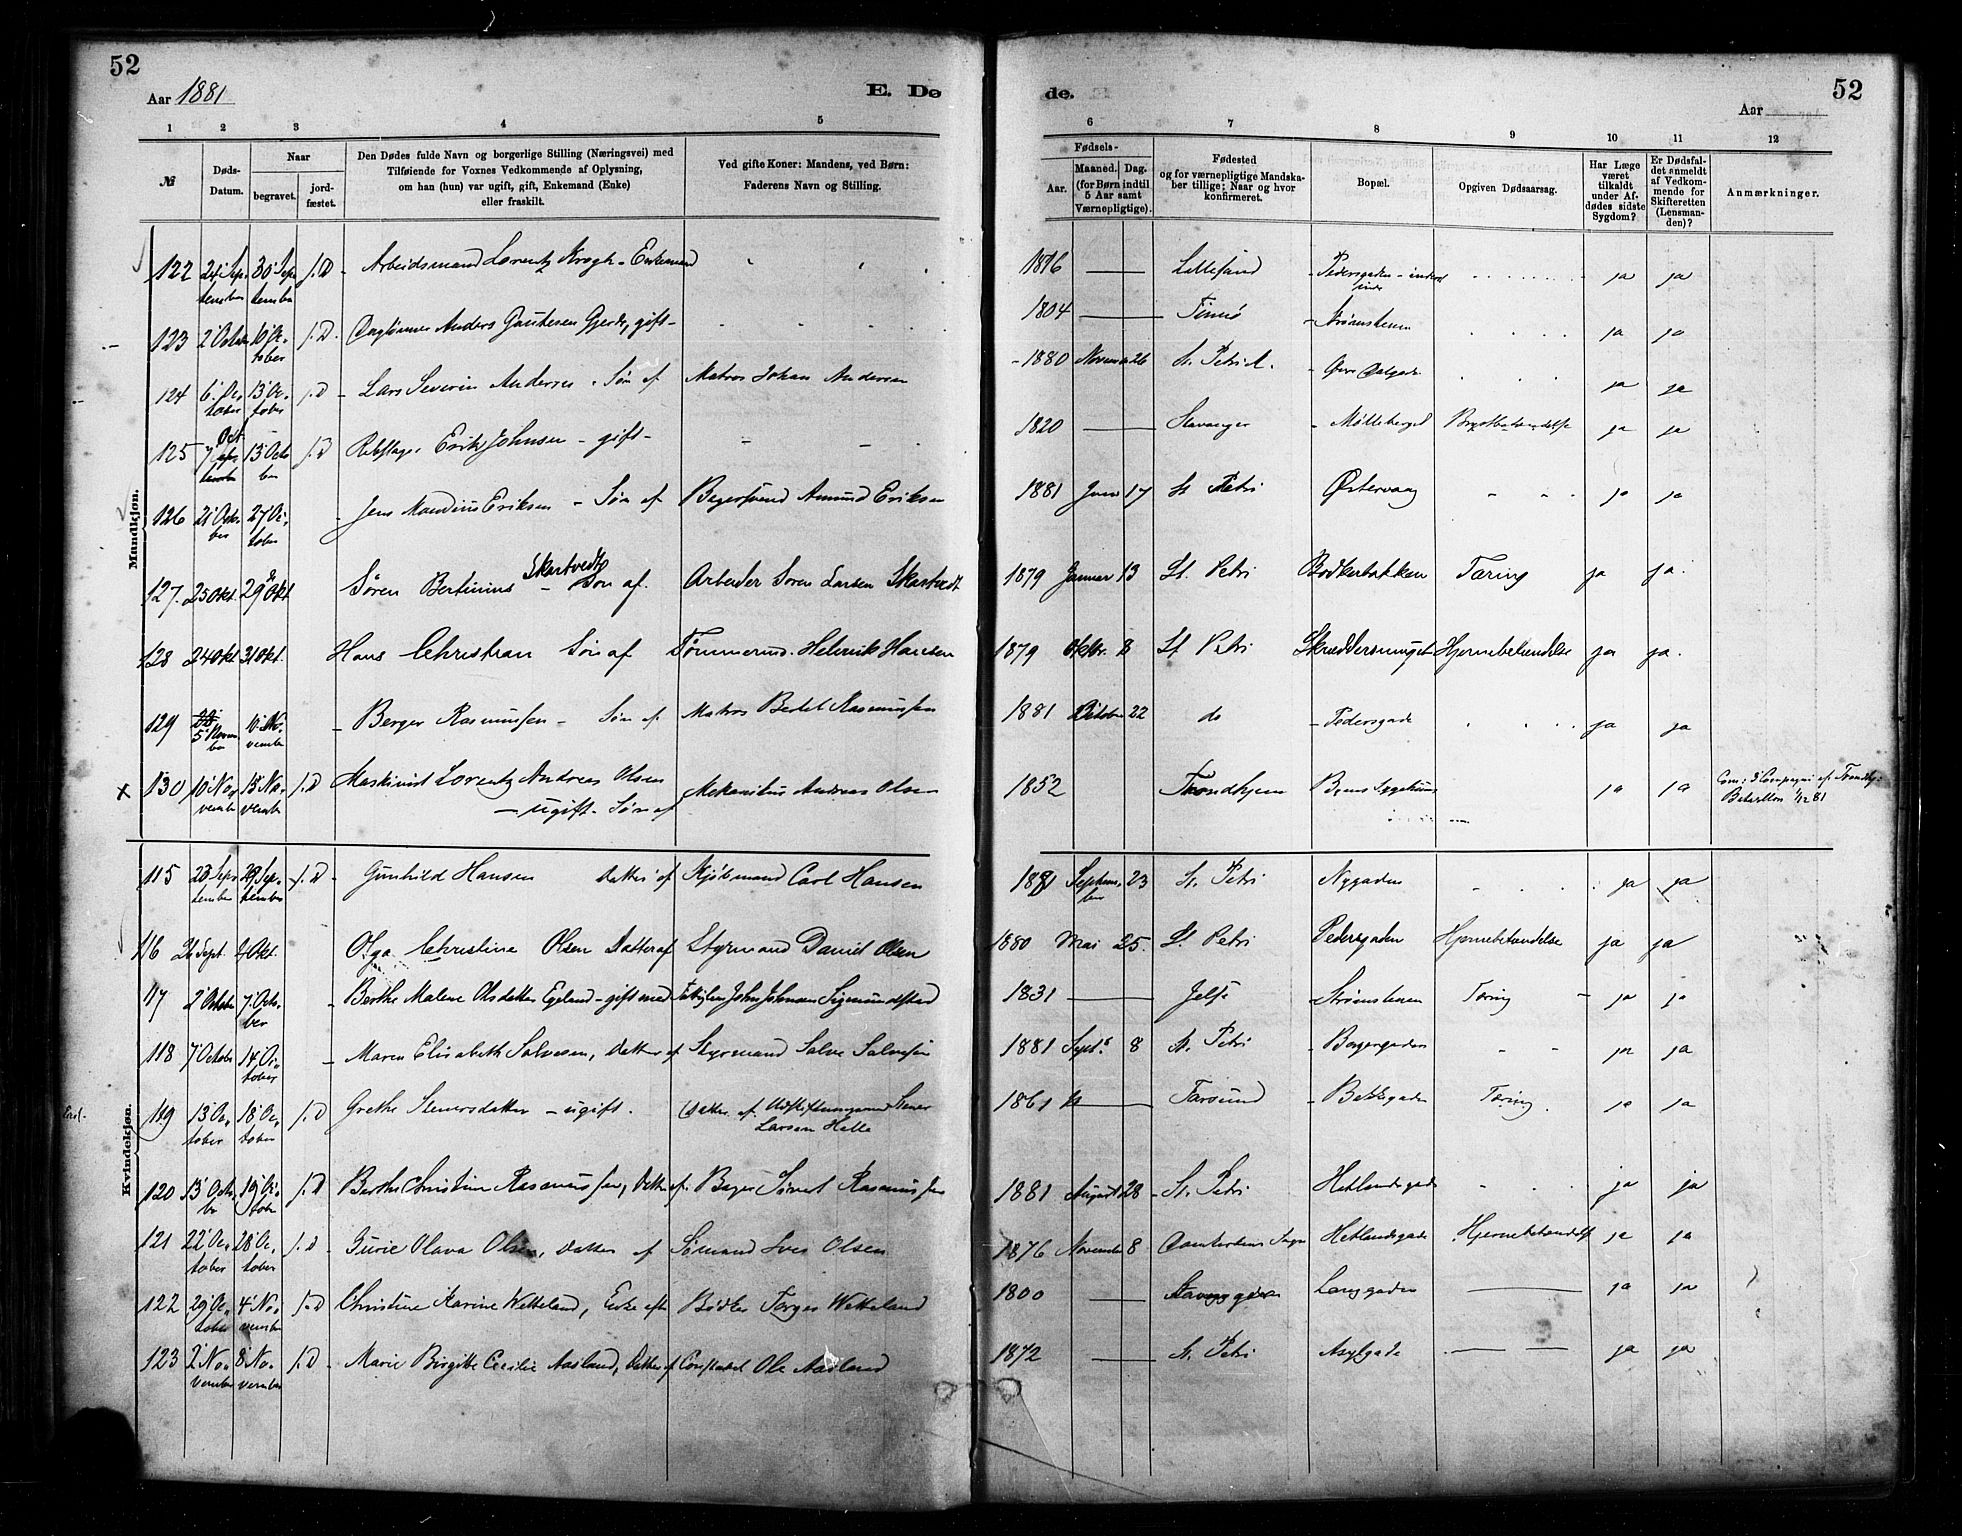 52
52
Aar 1881
E. Dø
de.
Aar
1 2 3 4 5 6 7 8 9 10 11 12
№
Døds-Datum.
Naar
begravet.
jordfæstet.
Den Dødes fulde Navn og borgerlige Stilling (Næringsvei) med
Tilføiende for Voxnes Vedkommende af Oplysning,
om han (hun) var ugift, gift, Enkemand (Enke)
eller fraskilt.
Ved gifte Koner: Mandens, ved Børn:
Faderens Navn og Stilling.
Fødsels-
Aar.
Maaned. Dag.
(for Børn indtil
5 Aar samt
Værnepligtige).
Fødested
og for værnepligtige Mandska-
ber tillige: Naar og hvor
konfirmeret.
Bopæl.
Opgiven Dødsaarsag.
Har Læge
været
tilkaldt
under Af-
dødes sidste
Sygdom?
Er Dødsfal-
det anmeldt
af Vedkom-
mende for
Skifteretten
(Lensman-
den)?
Anmærkninger.
Mandkjøn.
122 24 September 30 September j.D - Arbeidsmand Lorentz Krogh - Enkemand 1816 — Lillesand - Pedersgaden ja ja
123 2 October 10 October j.D. Anders Gautesen Gjerde, gift - 1804 — - Strømstenen ja ja
124 6 October 13 October j.D - Lars Severin Andersen - Søn af Matros Johan Andersen 1880 26 St. Petri - Øvre ja ja
125 7 Oct 13 October j.D Erik Johnsen - gift - 1820 — Stavanger - Møllebergd Brystbetændelse ja ja
126 21 October 27 October - Jens Eriksen - Søn af Amund Eriksen 1881 17 St Petri Østervaag ja ja
127. 25 Okt. 29 Okt Søren Bertinius Skartvedt - Søn af. Arbeider Søren Larsen Skartvedt 1879 Januar 13 St. Petri Bødkerbakken Tæring ja ja.
128 24 Okt 31 Okt. Hans Christian Søn af Tømmermd. Helmik Hansen 1879 Oktbr. 8 St Petri Hjernebetændelse ja ja.
129 5 November 10 November - Berger Rasmussen - Søn af Matros Bertel Rasmussen 1881 October 22 do - Pedersgade ja ja
130 10 November 15 November j.D Maskinist Lorentz Andreas Olsen
- ugift - Søn af Mekanikus Andreas Olsen 1852 Trondhjem Byens Sygehuus ja ja Com: 3 Compagni af Trondhj:
Batallion 1/12 81
Kvindekjøn.
115 23 September 29 September j.D - Gunhild Hansen Datter af Kjøbmand Carl Hansen 1881 September 23 St. Petri Nygaden ja ja
116 26 Sept. 2 Okt. Olga Christine Olsen Datter af Styrmand Daniel Olsen 1880 Mai 25. St. Petri Pedersgaden Hjernebetændelse ja ja
117 2 October 7 October - Berthe Malene Olsdatter Egeland - gift med John Johnsen Sigmundstad 1831 — Jelse Strømstenen Tæring - ja ja
118 7 October 14 October - Maren Elisabeth Salvesen, Datter af Styrmand Salve Salvesen 1881 Septr 8 St. Petri - Borgergaden ja ja
119 13 October 18 October j.D Grethe Stenersdatter - ugift. Datter af Stener
Larsen Helle 1861 — Farsund - Bakkegaden Tæring. ja ja
120 13 October 19 October j.D Berthe Christine Rasmussen, Datter af Rasmussen 1881 August 28 - St. Petri Hetlandsgade ja ja
121 22 October 28 October j.D - Gurie Olava Olsen, Datter af Sømand Iver Olsen 1876 November 8 Hetlandsgade Hjernebetændelse ja ja
122 29 October 4 November j.D Christine Karine Wetteland, Enke efter Bødker Torger Wetteland 1800 — Langgaden — ja ja
123 2 November 8 November j.D - Marie Birgitte Cecilie Aasland, Datter af Constabel Ole Aasland 1872 — St. Petri Asylgade — ja ja